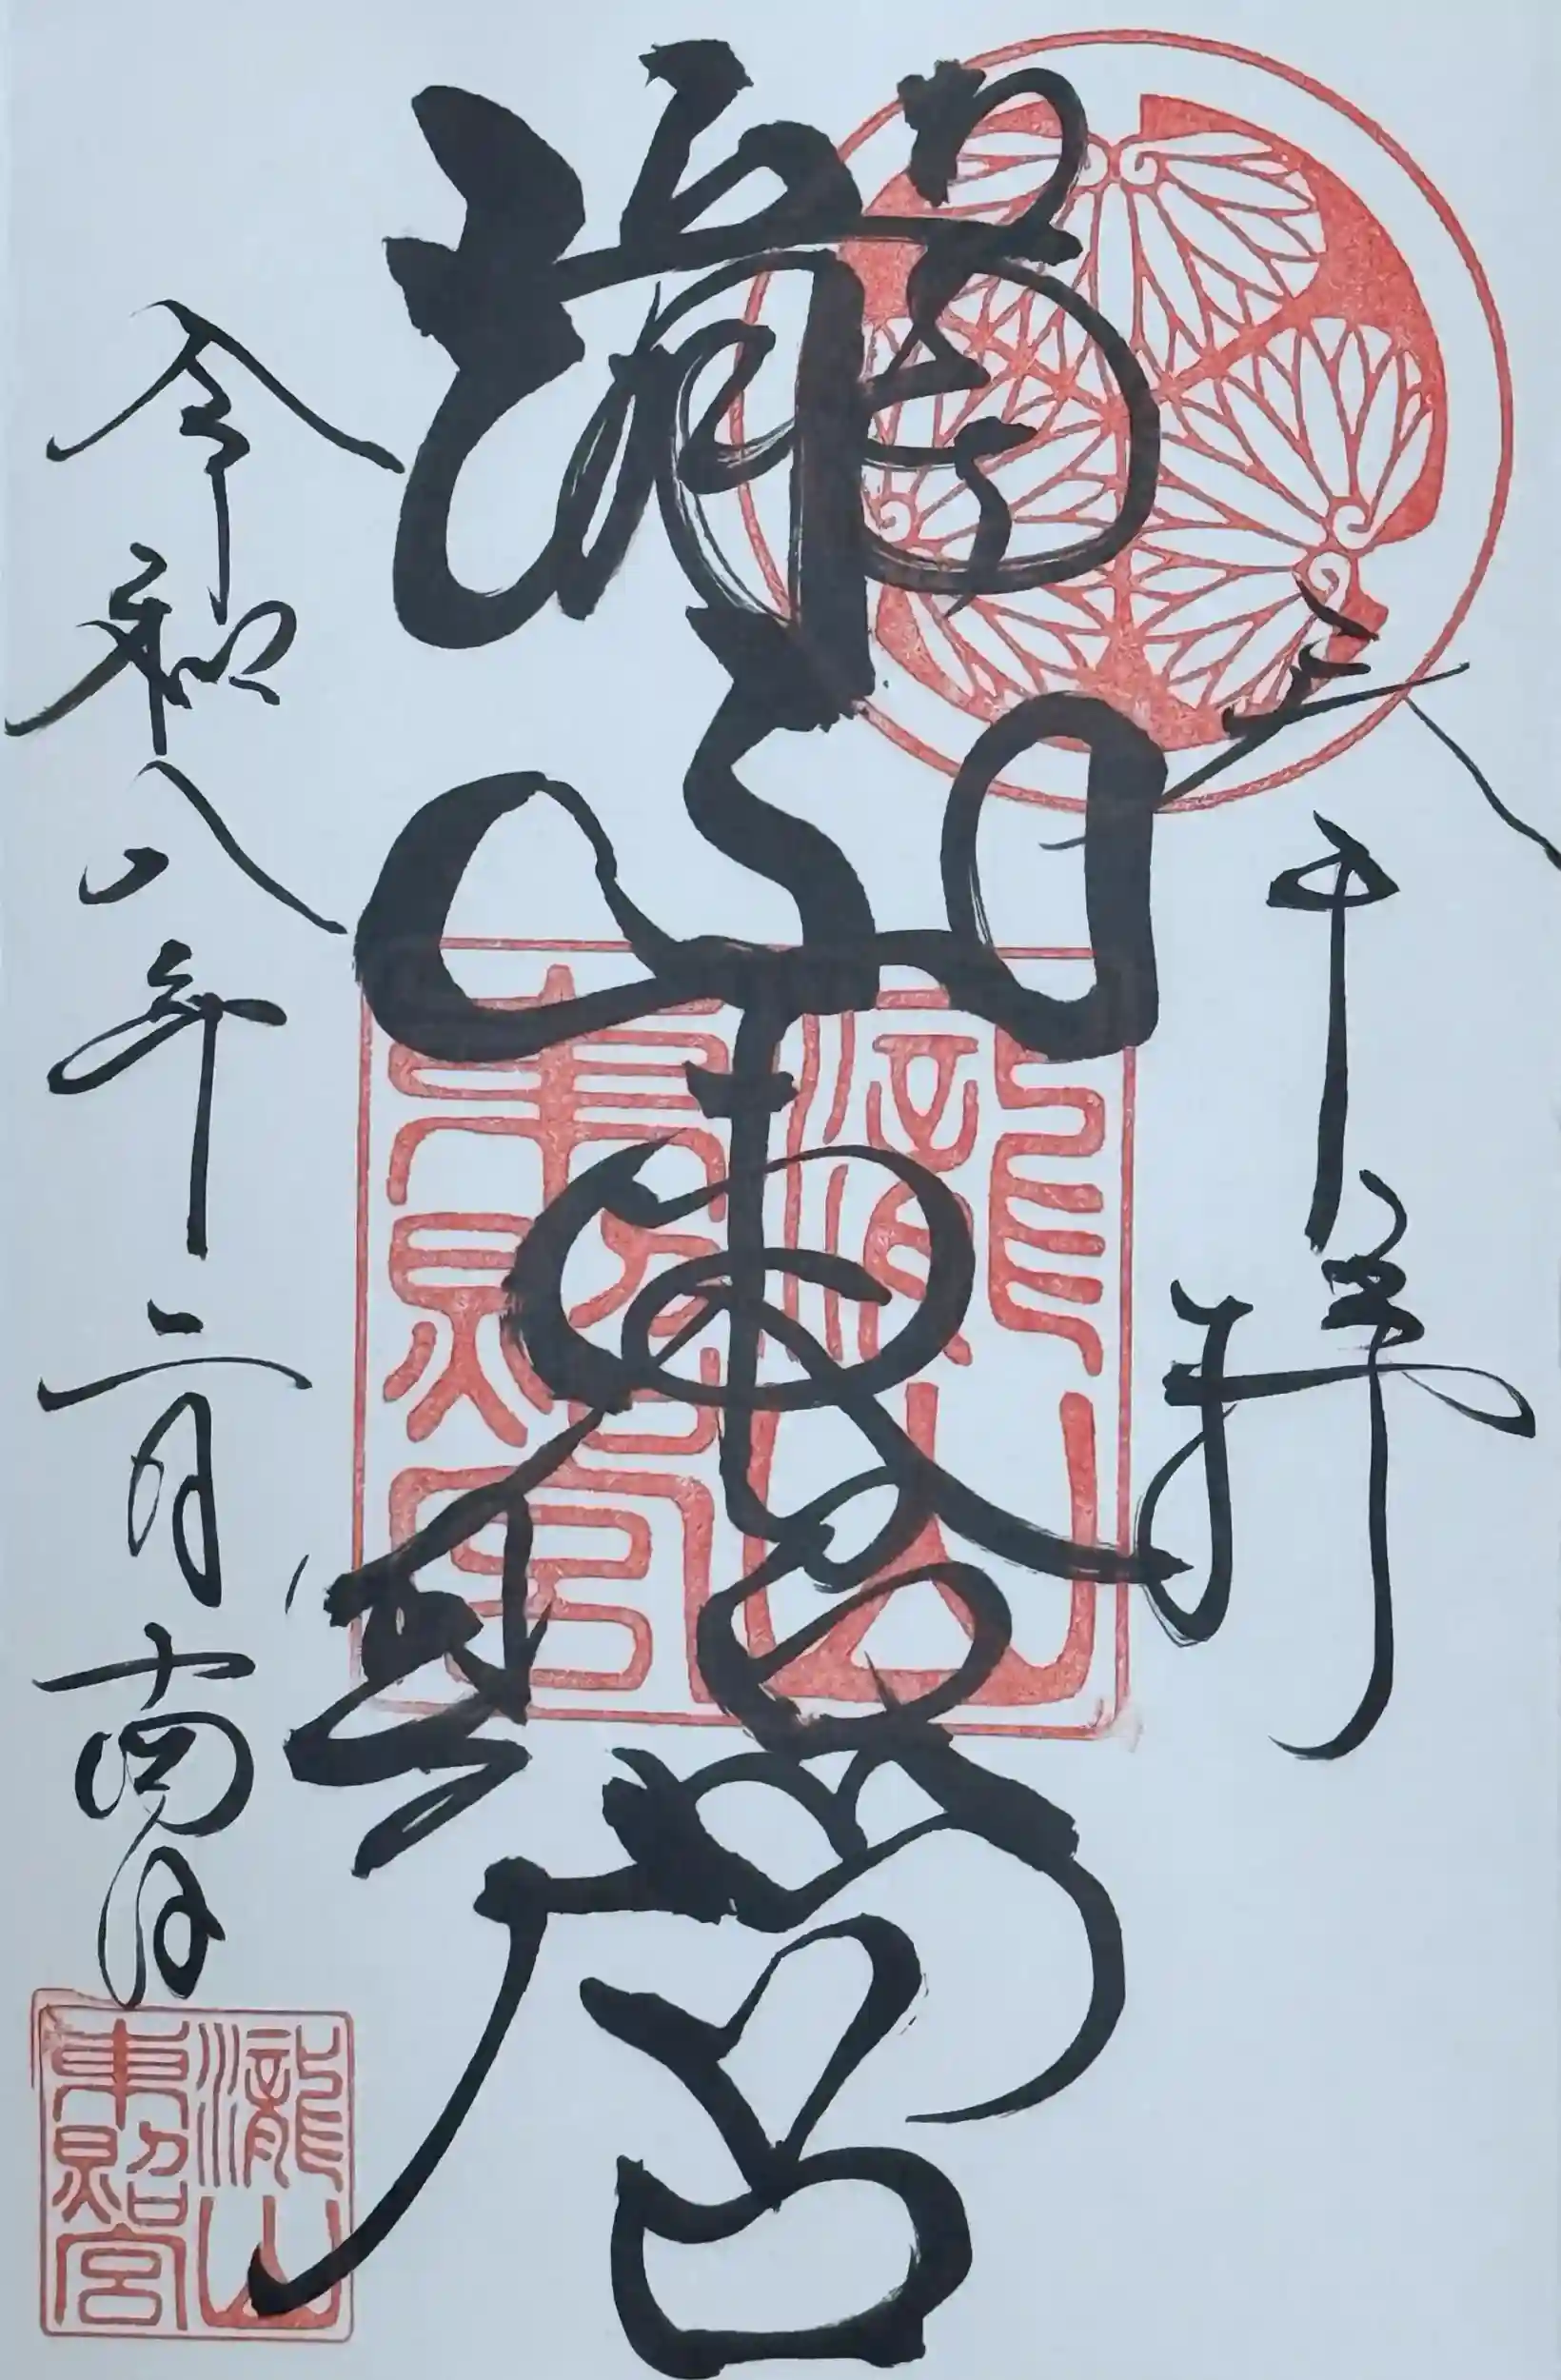 奉拝
瀧山東照宮
瀧山
東照宮
令和八年二月十四日
瀧山
東照宮